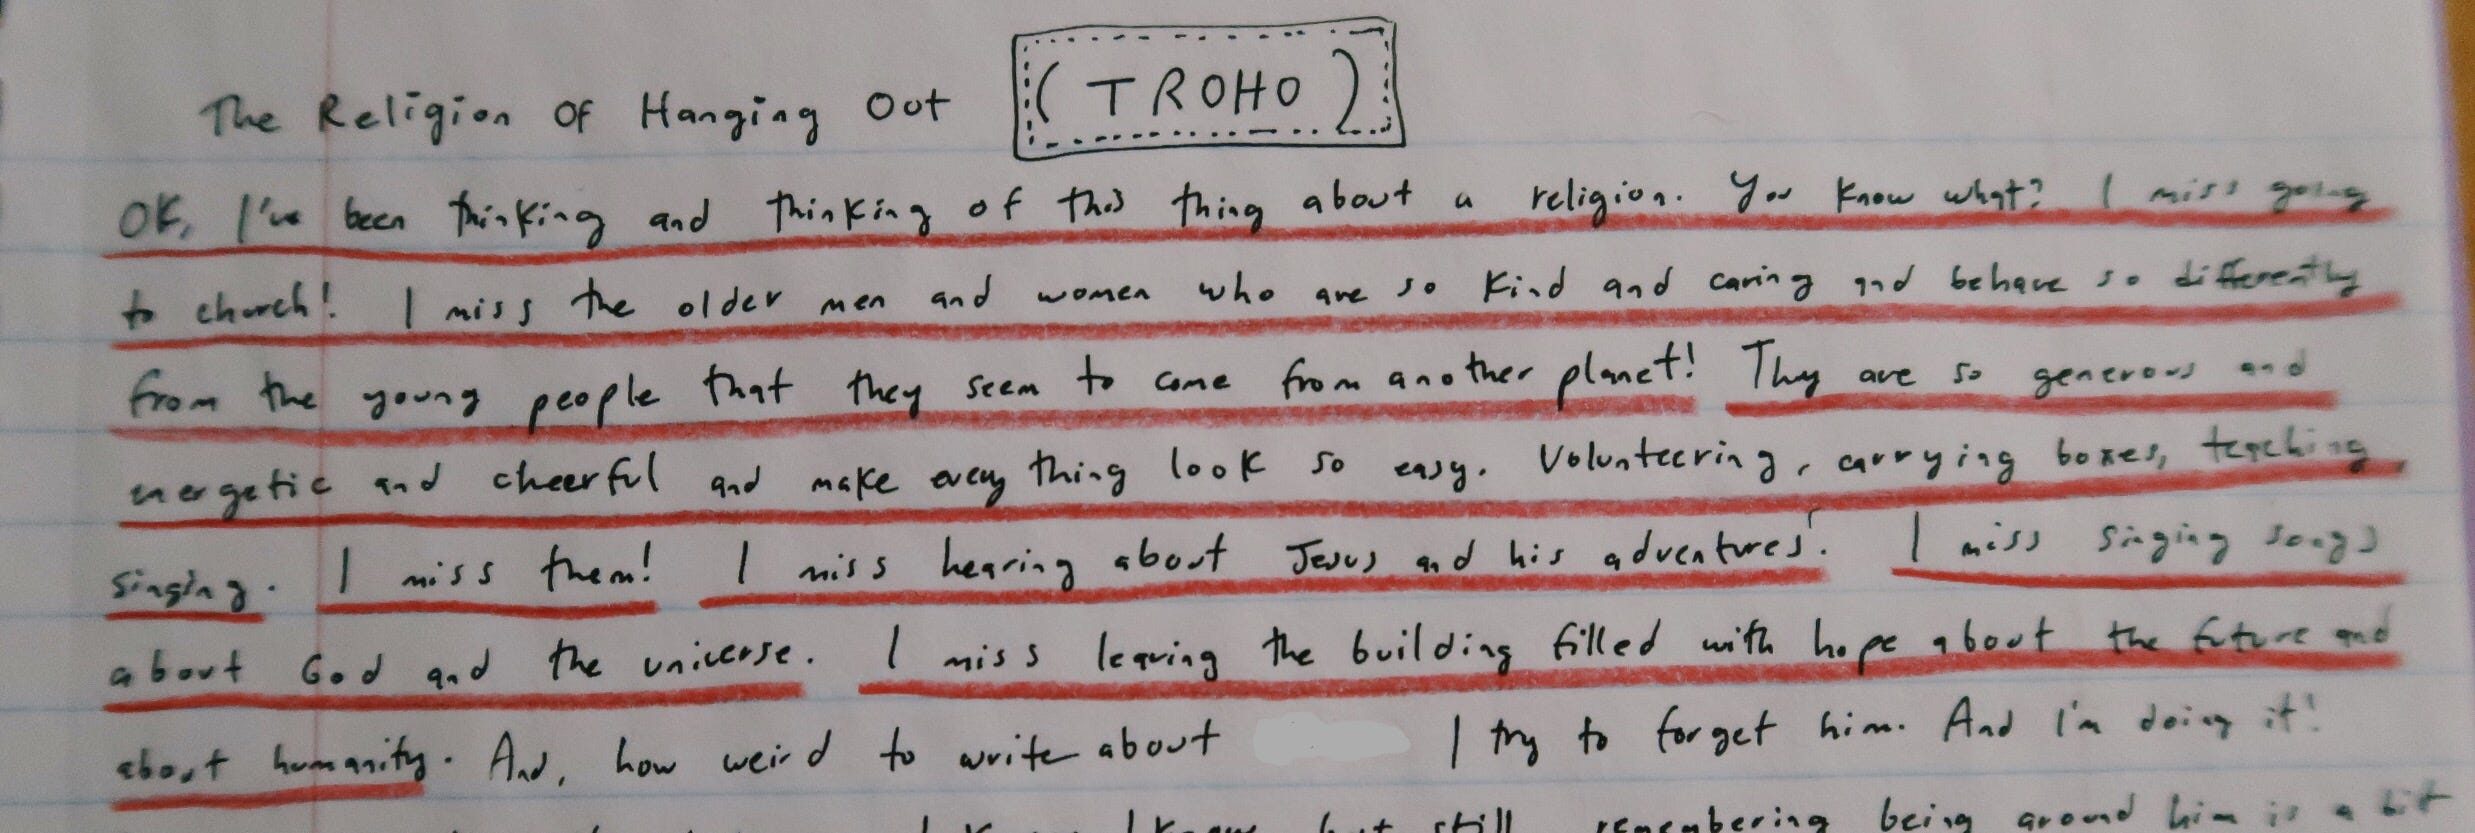 The Religion Of Hanging Out (TROHO)
OK, I've been thinking and thinking of this thing about a religion. You know what? I miss going
to church! I miss the older men and women who are so kind and caring and behave so differently
from the young people that they seem to come from another planet! They are so generous and
energetic and cheerful and make every thing look so easy. Volunteering, carrying boxes, teaching,
singing. I miss them! I miss hearing about Jesus and his adventures! I miss singing songs
about God and the universe. I miss leaving the building filled with hope about the future and
about humanity. And, how weird to write about I try to forget him. And I'm doing it!
I know, I know, but still remembering being around him is a bit